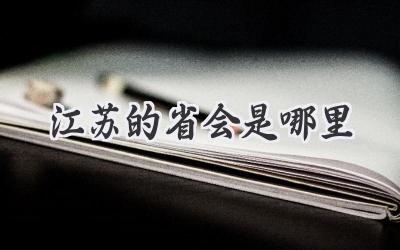 江苏的省会是哪里